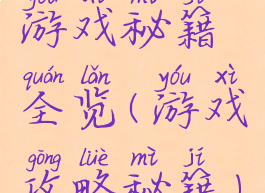 yóu xì mì jí
游戏秘籍
quán lǎn yóu xì
全览(游戏
gōng lüè mì jí
攻略秘籍)